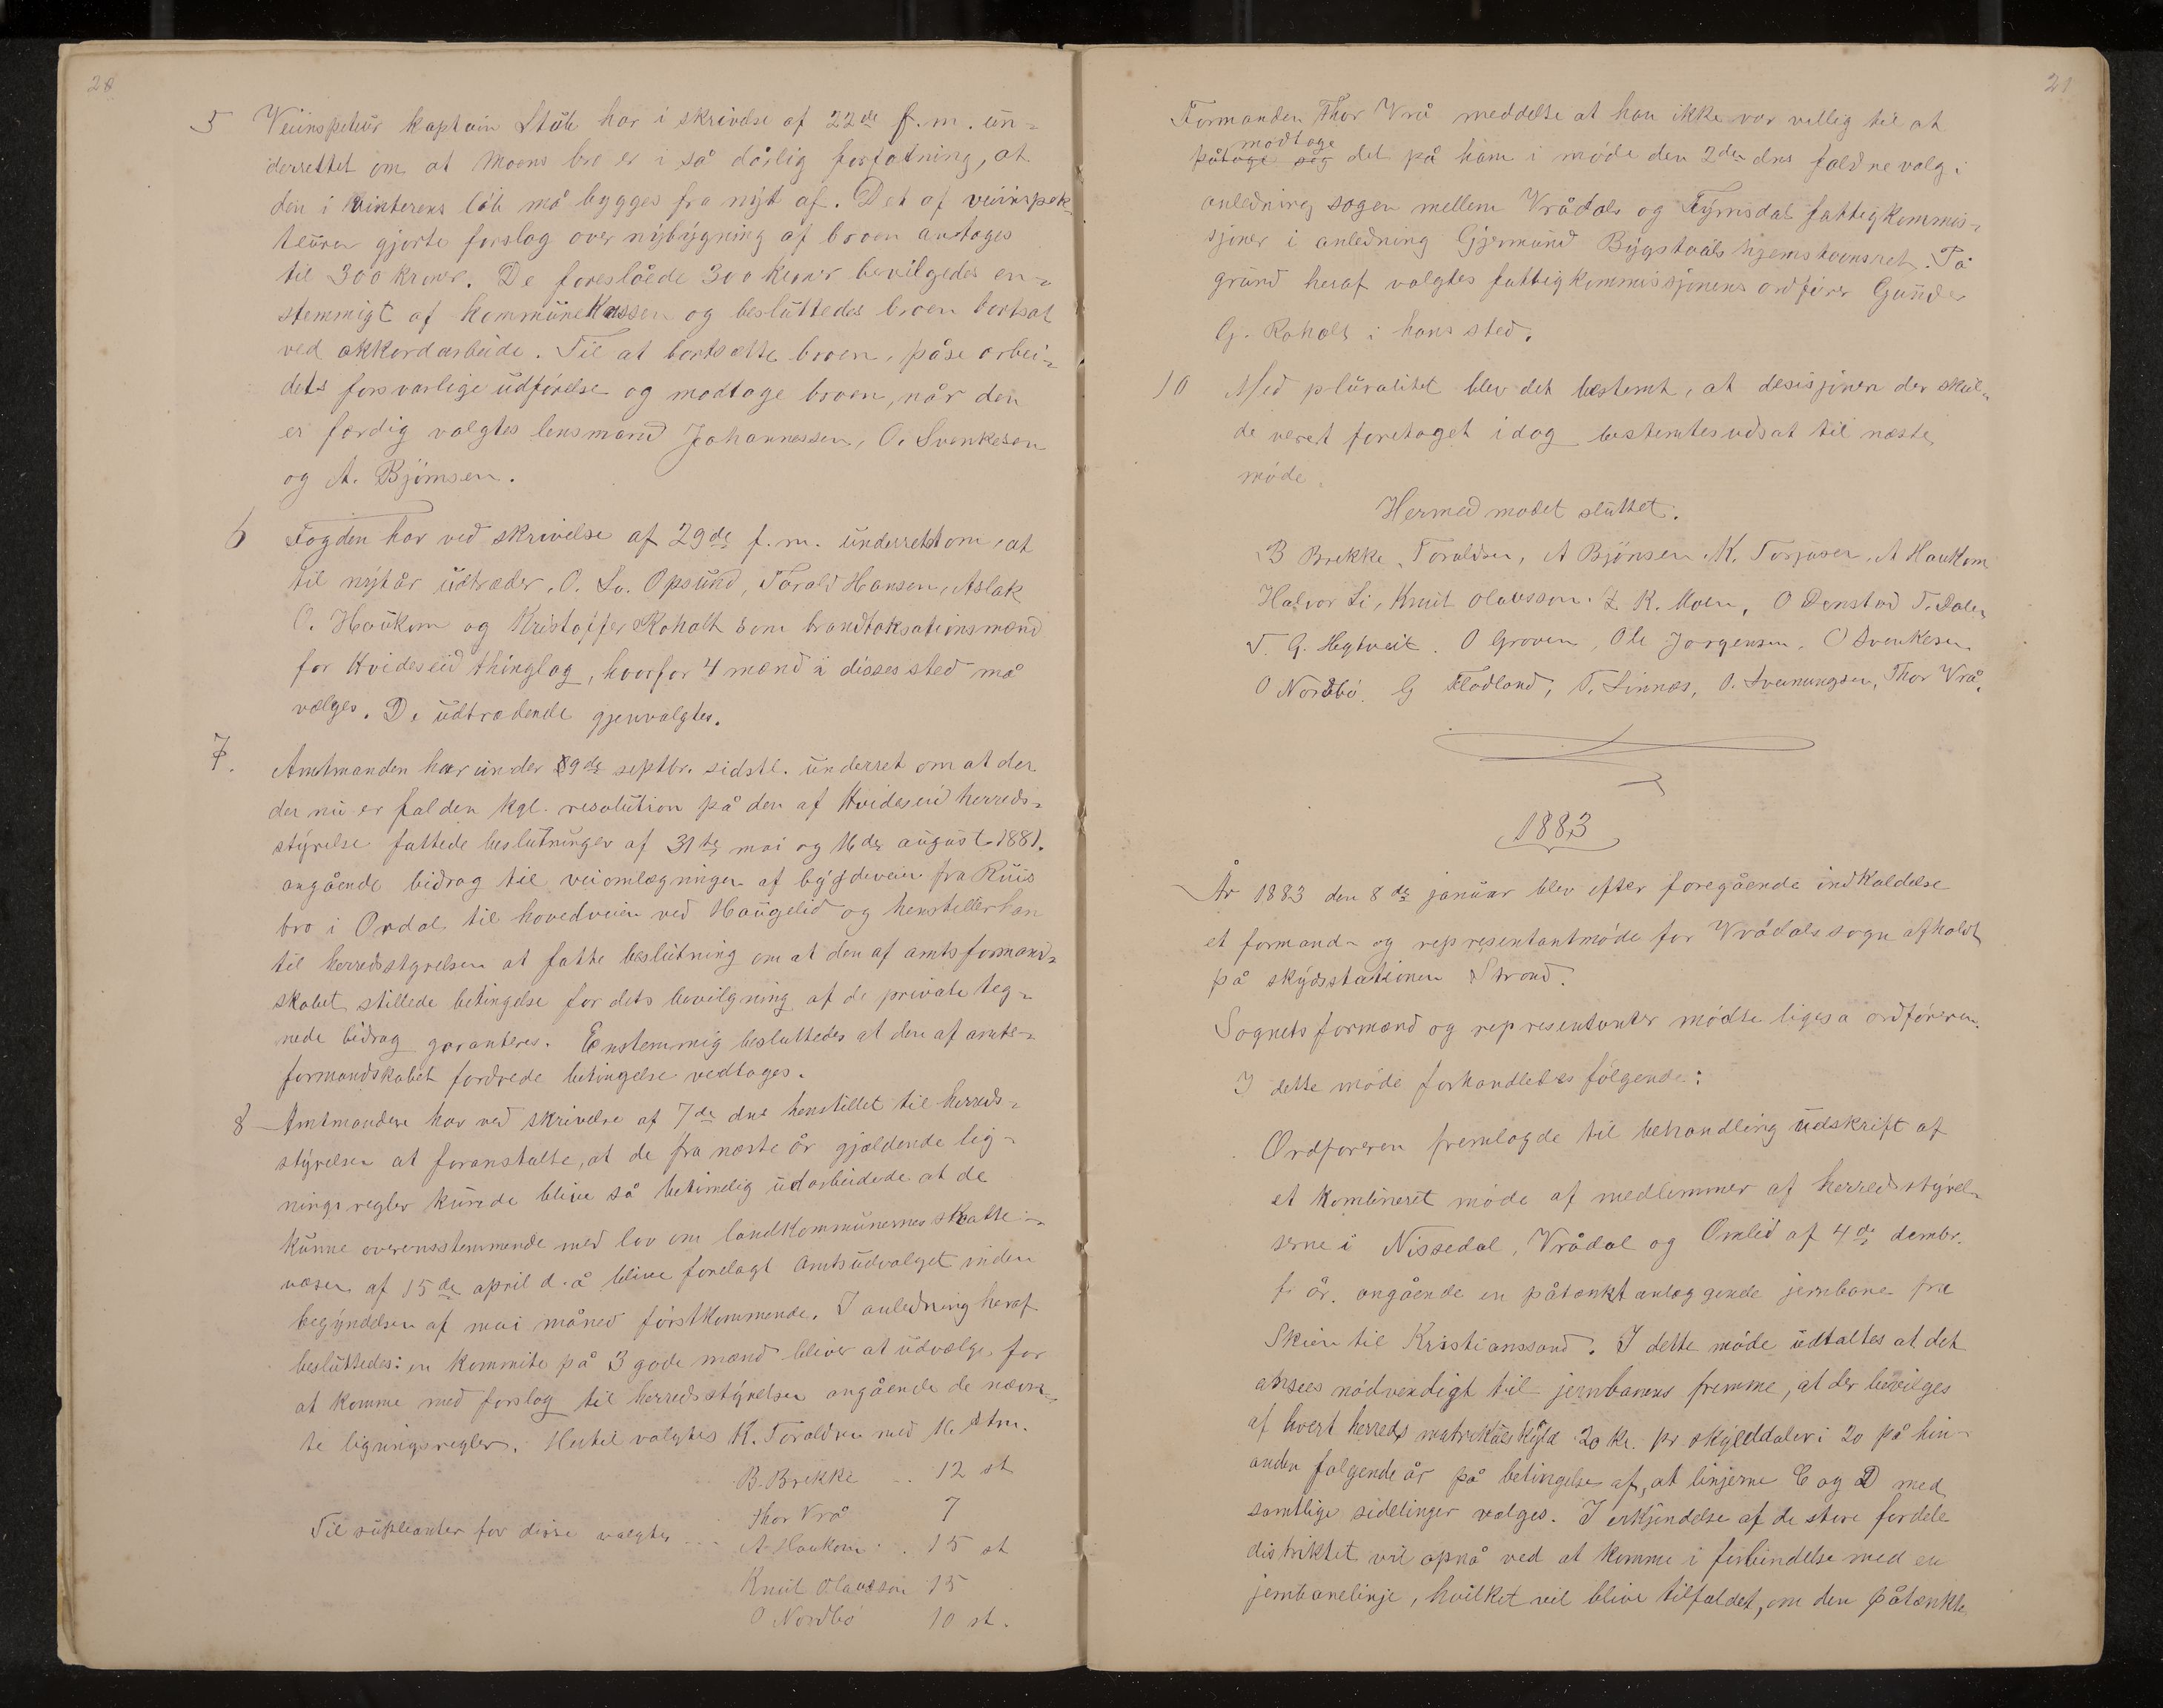 20
5 Veiinspeteur kaptein Stub har i skrivelse af 22de f.m. un-
derrettet om at Moens bro er i så dårlig forfatning, at
den i vinterens löb må bygges fra nyt af. Det af veiinspek-
teuren gjorte forslag over nybygning af broen antages
til 300 kroner. De foreslåede 300 kroner bevilgedes en-
stemmigt af kommunekassen og besluttedes broen bortsat
ved akkordarbeide. Til at bortsætte broen, påse arbei-
dets forsvarlige udförelse og modtage broen, når den
er færdig valgtes lensmand Johannessen, O. Svenkesen
og A. Björnsen.
6 Fogden har ved skrivelse af 29de f.m. underrettet om, at
til nytår udtræder, O. Opsund, Torald Hansen, Aslak
O. Haukom og Kristoffer Roholt som brandtaksationsmænd
for Hvideseid thinglag, hvorfor 4 mænd i disses sted må
vælges. De udtrædende gjenvalgtes.
7. Amtmanden har under 9de septbr. sidstl. underret om at der
der nu er falden kgl. resolution på den af Hvideseid herreds-
styrelse fattede beslutninger af 31te mai og 16de august 1881.
angående bidrag til veiomlægningen af bygdeveien fra Ruis
bro i Ordal til hovedveien ved Haugelid og henstiller han
til herredsstyrelsen at fatte beslutning om at den af amtsformand-
skabet stillede betingelse for dets bevilgning af de private teg-
nede bidrag garanteres. Enstemmig besluttedes at den af amts-
formandskabet fordrede betingelse vedtages.
8 Amtmanden har ved skrivelse af 7de dns henstillet til herreds-
styrelsen at foranstalte, at de fra næste år gjældende lig-
ningsregler kunde blive så betimelig udarbeidede at de
kunne overensstemmende med lov om landkommunernes skatte-
væsen af 15de april d. å blive forelagt Amtsudvalget inden
begyndelsen af mai måned förstkommende. I anledning heraf
besluttedes: en kommite på 3 gode mænd bliver at udvælge for
at komme med forslag til herredsstyrelsen angående de nævn-
te ligningsregler. Hertil valgtes K. Toraldsen med 16 stm.
B. Brekke .. 12 st
Thor Vrå 7
Til supleanter for disse valgtes ... A. Haukom . 15 st
Knut Olavsson 15
O Nordbö 10 st.
21
Formanden Thor Vrå meddelte at han ikke var villig til at
modtage
påtage sig det på ham i möde den 2den dns faldne valg i
anledning sagen mellem Vrådals og Fyrrisdal fattigkommis-
sjoner i anledning Gjermund Bygstaals hjemstavnsret. På
grund heraf valgtes fattigkommissjonens ordförer Gunder
G. Roholt i hans sted.
10 Med pluralitet blev det bestemt, at desisjonen der skul-
de veret foretaget idag bestemtes udsat til næste
möde.
Hermed mödet sluttet.
B Brekke, Toraldsen, A Björnsen, K. Torjusen, A Haukom
Halvor Li, Knut Olavsson. Z. K. Moen, O Denstad T. Dalen
T. G. Hegtveit. O Groven, Ole Jorgensen, O Svenkesen
O Nordbö. G Flodland, T. Linnæs, O. Sveinungsen, Thor Vrå.
1883
År 1883 den 8de januar blev efter foregående indkaldelse
et formand- og representantmöde for Vrådals sogn afholdt
på skydsstationen Strond.
Sognets formænd og representanter mödte ligeså ordföreren.
I dette möde forhandledes fölgende:
Ordföreren fremlagde til behandling udskrift af
et kombineret möde af medlemmer af herredsstyrel-
serne i Nissedal, Vrådal og Omlid af 4de dembr.
f. år. angående en påtænkt anlæggende jernbane fra
Skien til Kristianssand. I dette möde udtaltes at det
ansees nödvendigt til jernbanens fremme, at der bevilges
af hvert herreds matrikulskyld 20 kr. pr skylddaler i 20 på hin-
anden følgende år på betingelse af, at linjerne C og D med
samtlige sidelinjer vælges. I erkjendelse af de store fordele
distriktet vil opnå ved at komme i forbindelse med en
jernbanelinje, hvilket vil blive tilfældet, om den påtænkte